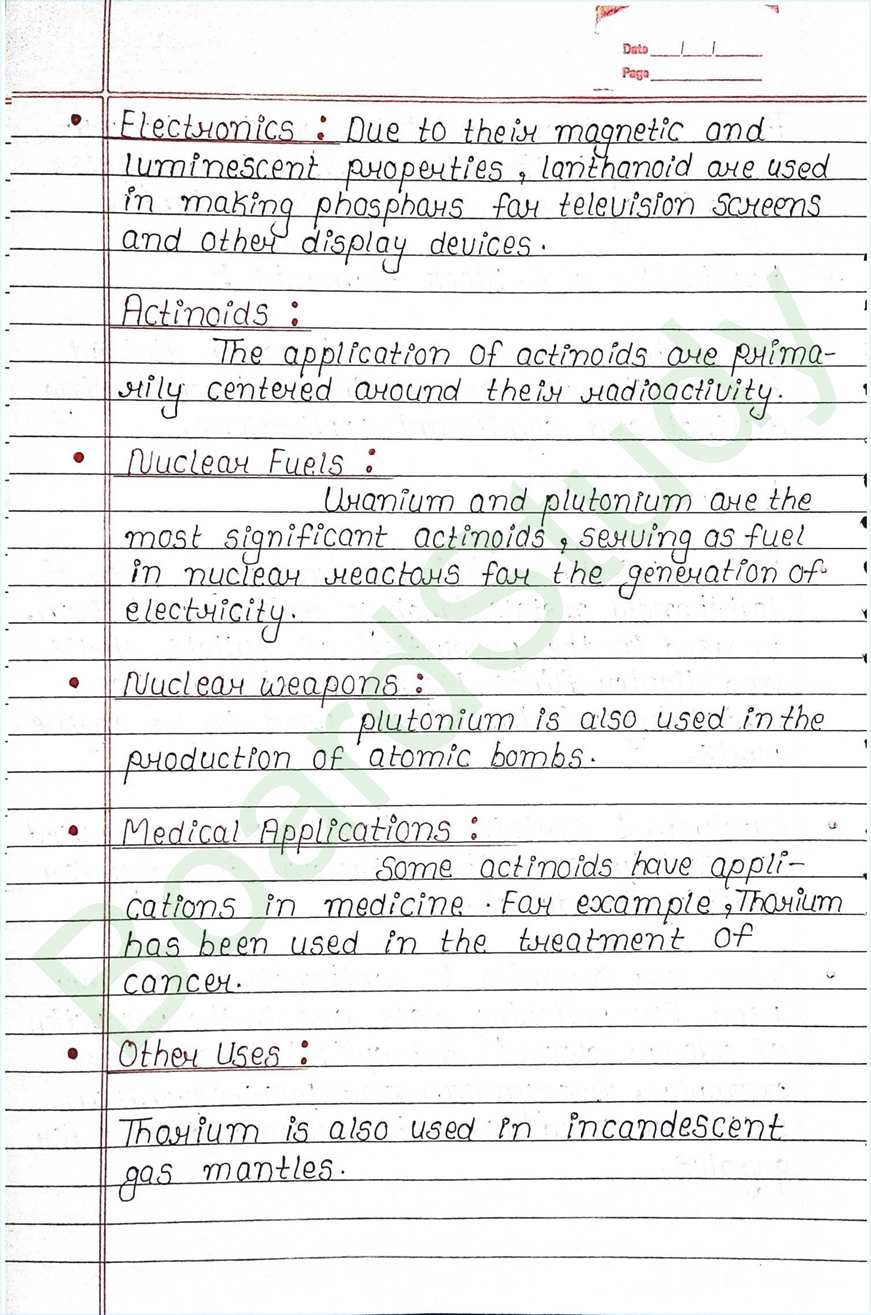 Date / /
Page
Electronics : Due to their magnetic and
luminescent properties, lanthanoid are used
in making phosphors for television screens
and other display devices.
Actinoids :
The application of actinoids are prima-
rily centered around their radioactivity.
Nuclear Fuels :
Uranium and plutonium are the
most significant actinoids, serving as fuel
in nuclear reactors for the generation of
electricity.
Nuclear weapons :
plutonium is also used in the
production of atomic bombs.
Medical Applications :
Some actinoids have appli-
cations in medicine. For example, Thorium
has been used in the treatment of
cancer.
Other Uses :
Thorium is also used in incandescent
gas mantles.
BoardStudy